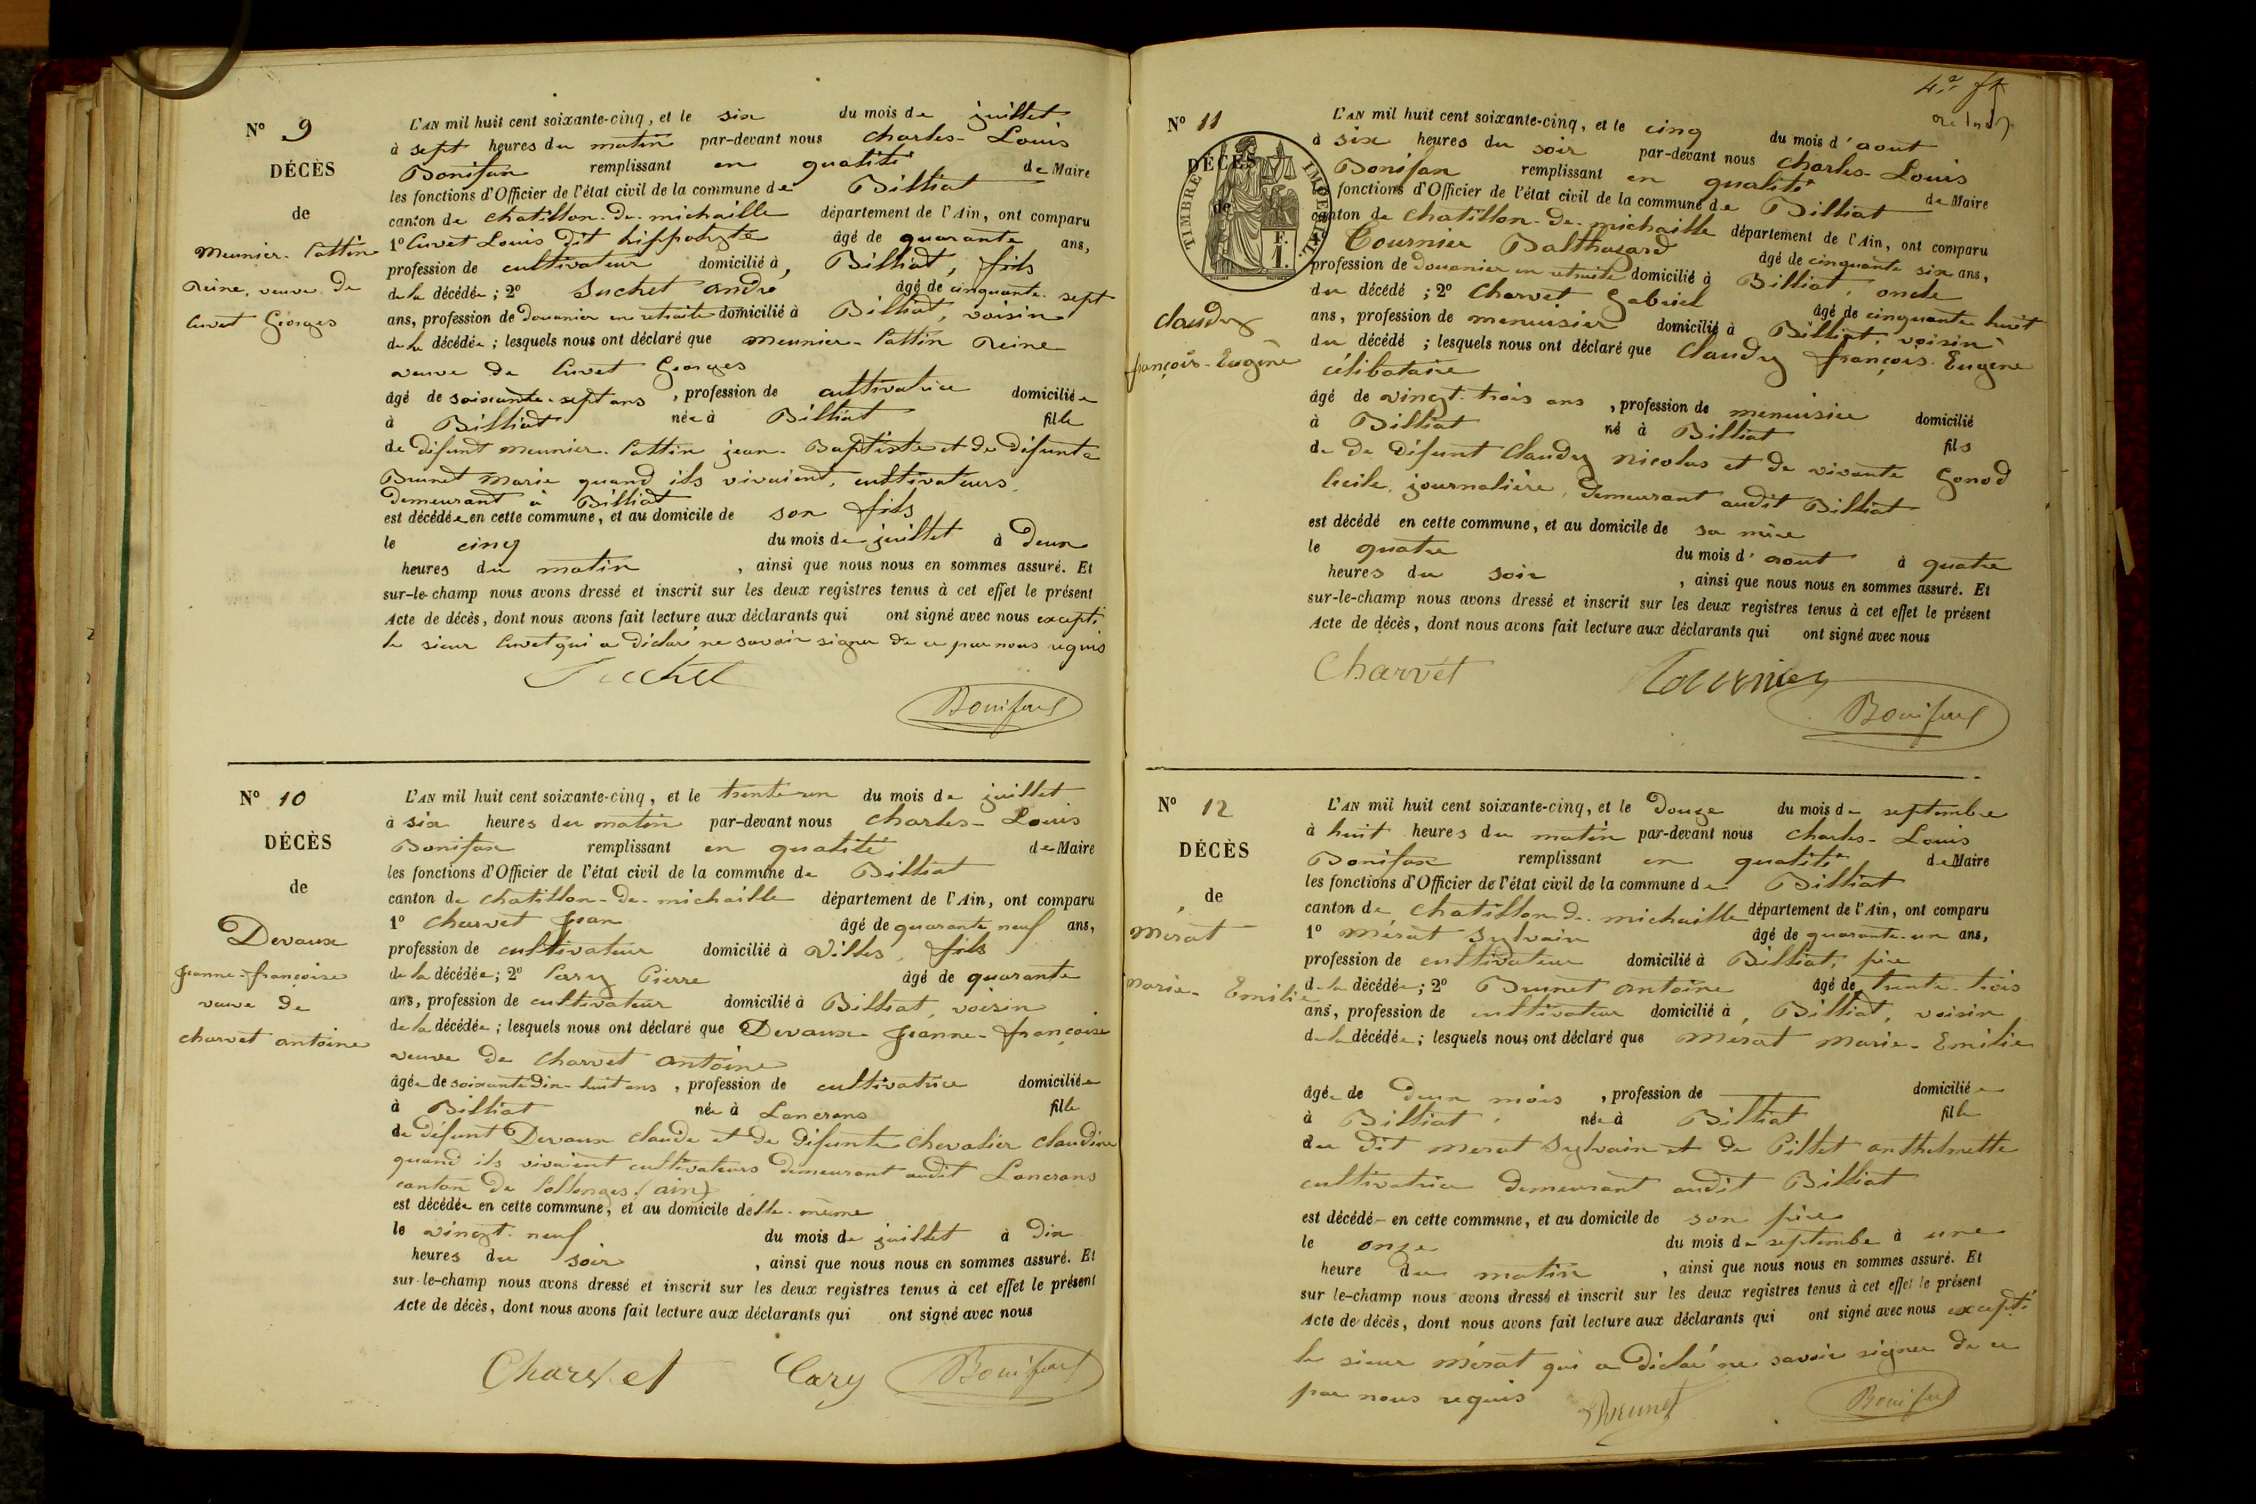 N° 9
DÉCÈS
de
Meunier-Cattin
Reine, veuve de
Cuvet Georges
L'AN mil huit cent soixante-cinq, et le six du mois de juillet
à sept heures du matin par-devant nous Charles-Louis
Bonifax remplissant en qualité de Maire
les fonctions d'Officier de l'état civil de la commune de Billiat
canton de Chatillon-de-michaille département de l'Ain, ont comparu
1° Cuvet Louis dit hippolyte âgé de quarante ans,
profession de cultivateur domicilié à Billiat, fils
de la décédée; 2° Suchet andré âgé de cinquante-sept
ans, profession de Douanier en retraite domicilié à Billiat, voisin
de la décédée; lesquels nous ont déclaré que Meunier-Cattin Reine
veuve de Cuvet Georges
âgé de soixante-sept ans, profession de cultivatrice domiciliée
à Billiat née à Billiat fille
de défunt Meunier-Cattin jean-Baptiste et de défunte
Brunet Marie quand ils vivaient, cultivateurs,
demeurant à Billiat
est décédée en cette commune, et au domicile de son fils
le cinq du mois de juillet à Deux
heures du matin, ainsi que nous nous en sommes assuré. Et
sur-le-champ nous avons dressé et inscrit sur les deux registres tenus à cet effet le présent
Acte de décès, dont nous avons fait lecture aux déclarants qui ont signé avec nous excepté
le sieur Cuvet qui a déclaré ne savoir signer de ce par nous requis
Suchet
Bonifax
N° 10
DÉCÈS
de
Devaux
Jeanne-françoise
veuve de
Charvet antoine
L'AN mil huit cent soixante-cinq, et le trente-un du mois de juillet
à six heures du matin par-devant nous Charles-Louis
Bonifax remplissant en qualité de Maire
les fonctions d'Officier de l'état civil de la commune de Billiat
canton de Chatillon-de-michaille département de l'Ain, ont comparu
1° Charvet Jean âgé de quarante neuf ans,
profession de cultivateur domicilié à Villes, fils
de la décédée; 2° Cary Pierre âgé de quarante
ans, profession de cultivateur domicilié à Billiat, voisin
de la décédée; lesquels nous ont déclaré que Devaux Jeanne-françoise
veuve de Charvet antoine
âgée de soixante Dix-huit ans, profession de cultivatrice domiciliée
à Billiat née à Lancrans fille
de défunt Devaux claude et de défunte Chevalier Claudine
quand ils vivaient cultivateurs demeurant audit Lancrans
canton de Collonges (ain)
est décédée en cette commune, et au domicile d'elle-même
le vingt-neuf du mois de juillet à Dix
heures du soir, ainsi que nous nous en sommes assuré. Et
sur-le-champ nous avons dressé et inscrit sur les deux registres tenus à cet effet le présent
Acte de décès, dont nous avons fait lecture aux déclarants qui ont signé avec nous
Charvet Cary Bonifax
N° 11
DÉCÈS
de
TIMBRE IMPERIAL
F.
1.
Claudy
françois-Eugène
L'AN mil huit cent soixante-cinq, et le cinq du mois d'aout
à six heures du soir par-devant nous Charles-Louis
Bonifax remplissant en qualité de Maire
fonctions d'Officier de l'état civil de la commune de Billiat
canton de Chatillon-de-michaille département de l'Ain, ont comparu
Tournier Balthazard âgé de cinquante six ans,
profession de douanier en retraite domicilié à Billiat, oncle
du décédé; 2° Charvet Gabriel âgé de cinquante huit
ans, profession de menuisier domicilié à Billiat, voisin
du décédé; lesquels nous ont déclaré que Claudy françois-Eugène
célibataire
âgé de vingt-trois ans, profession de menuisier domicilié
à Billiat né à Billiat fils
de de Défunt Claudy Nicolas et de vivante Gonod
Cécile, journalière, demeurant audit Billiat
est décédé en cette commune, et au domicile de sa mère
le quatre du mois d'aout à quatre
heures du soir, ainsi que nous nous en sommes assuré. Et
sur-le-champ nous avons dressé et inscrit sur les deux registres tenus à cet effet le présent
Acte de décès, dont nous avons fait lecture aux déclarants qui ont signé avec nous
Charvet Tournier
Bonifax
N° 12
DÉCÈS
de
Mérat
Marie-Emilie
L'AN mil huit cent soixante-cinq, et le Douze du mois de septembre
à huit heures du matin par-devant nous Charles-Louis
Bonifax remplissant en qualité de Maire
les fonctions d'Officier de l'état civil de la commune de Billiat
canton de Chatillon-de-michaille département de l'Ain, ont comparu
1° Mérat Sylvain âgé de quarante-un ans,
profession de cultivateur domicilié à Billiat, père
de la décédée; 2° Brunet antoine âgé de trente-trois
ans, profession de cultivateur domicilié à Billiat, voisin
de la décédée; lesquels nous ont déclaré que Mérat Marie-Emilie
âgée de Deux mois, profession de domiciliée
à Billiat née à Billiat fille
du dit Mérat Sylvain et de Pillet anthelmette
cultivatrice demeurant audit Billiat
est décédé en cette commune, et au domicile de son père
le onze du mois de septembe à une
heure du matin, ainsi que nous nous en sommes assuré. Et
sur le-champ nous avons dressé et inscrit sur les deux registres tenus à cet effet le présent
Acte de décès, dont nous avons fait lecture aux déclarants qui ont signé avec nous excepté
le sieur Mérat qui a déclaré ne savoir signer de ce
par nous requis Brunet Bonifax